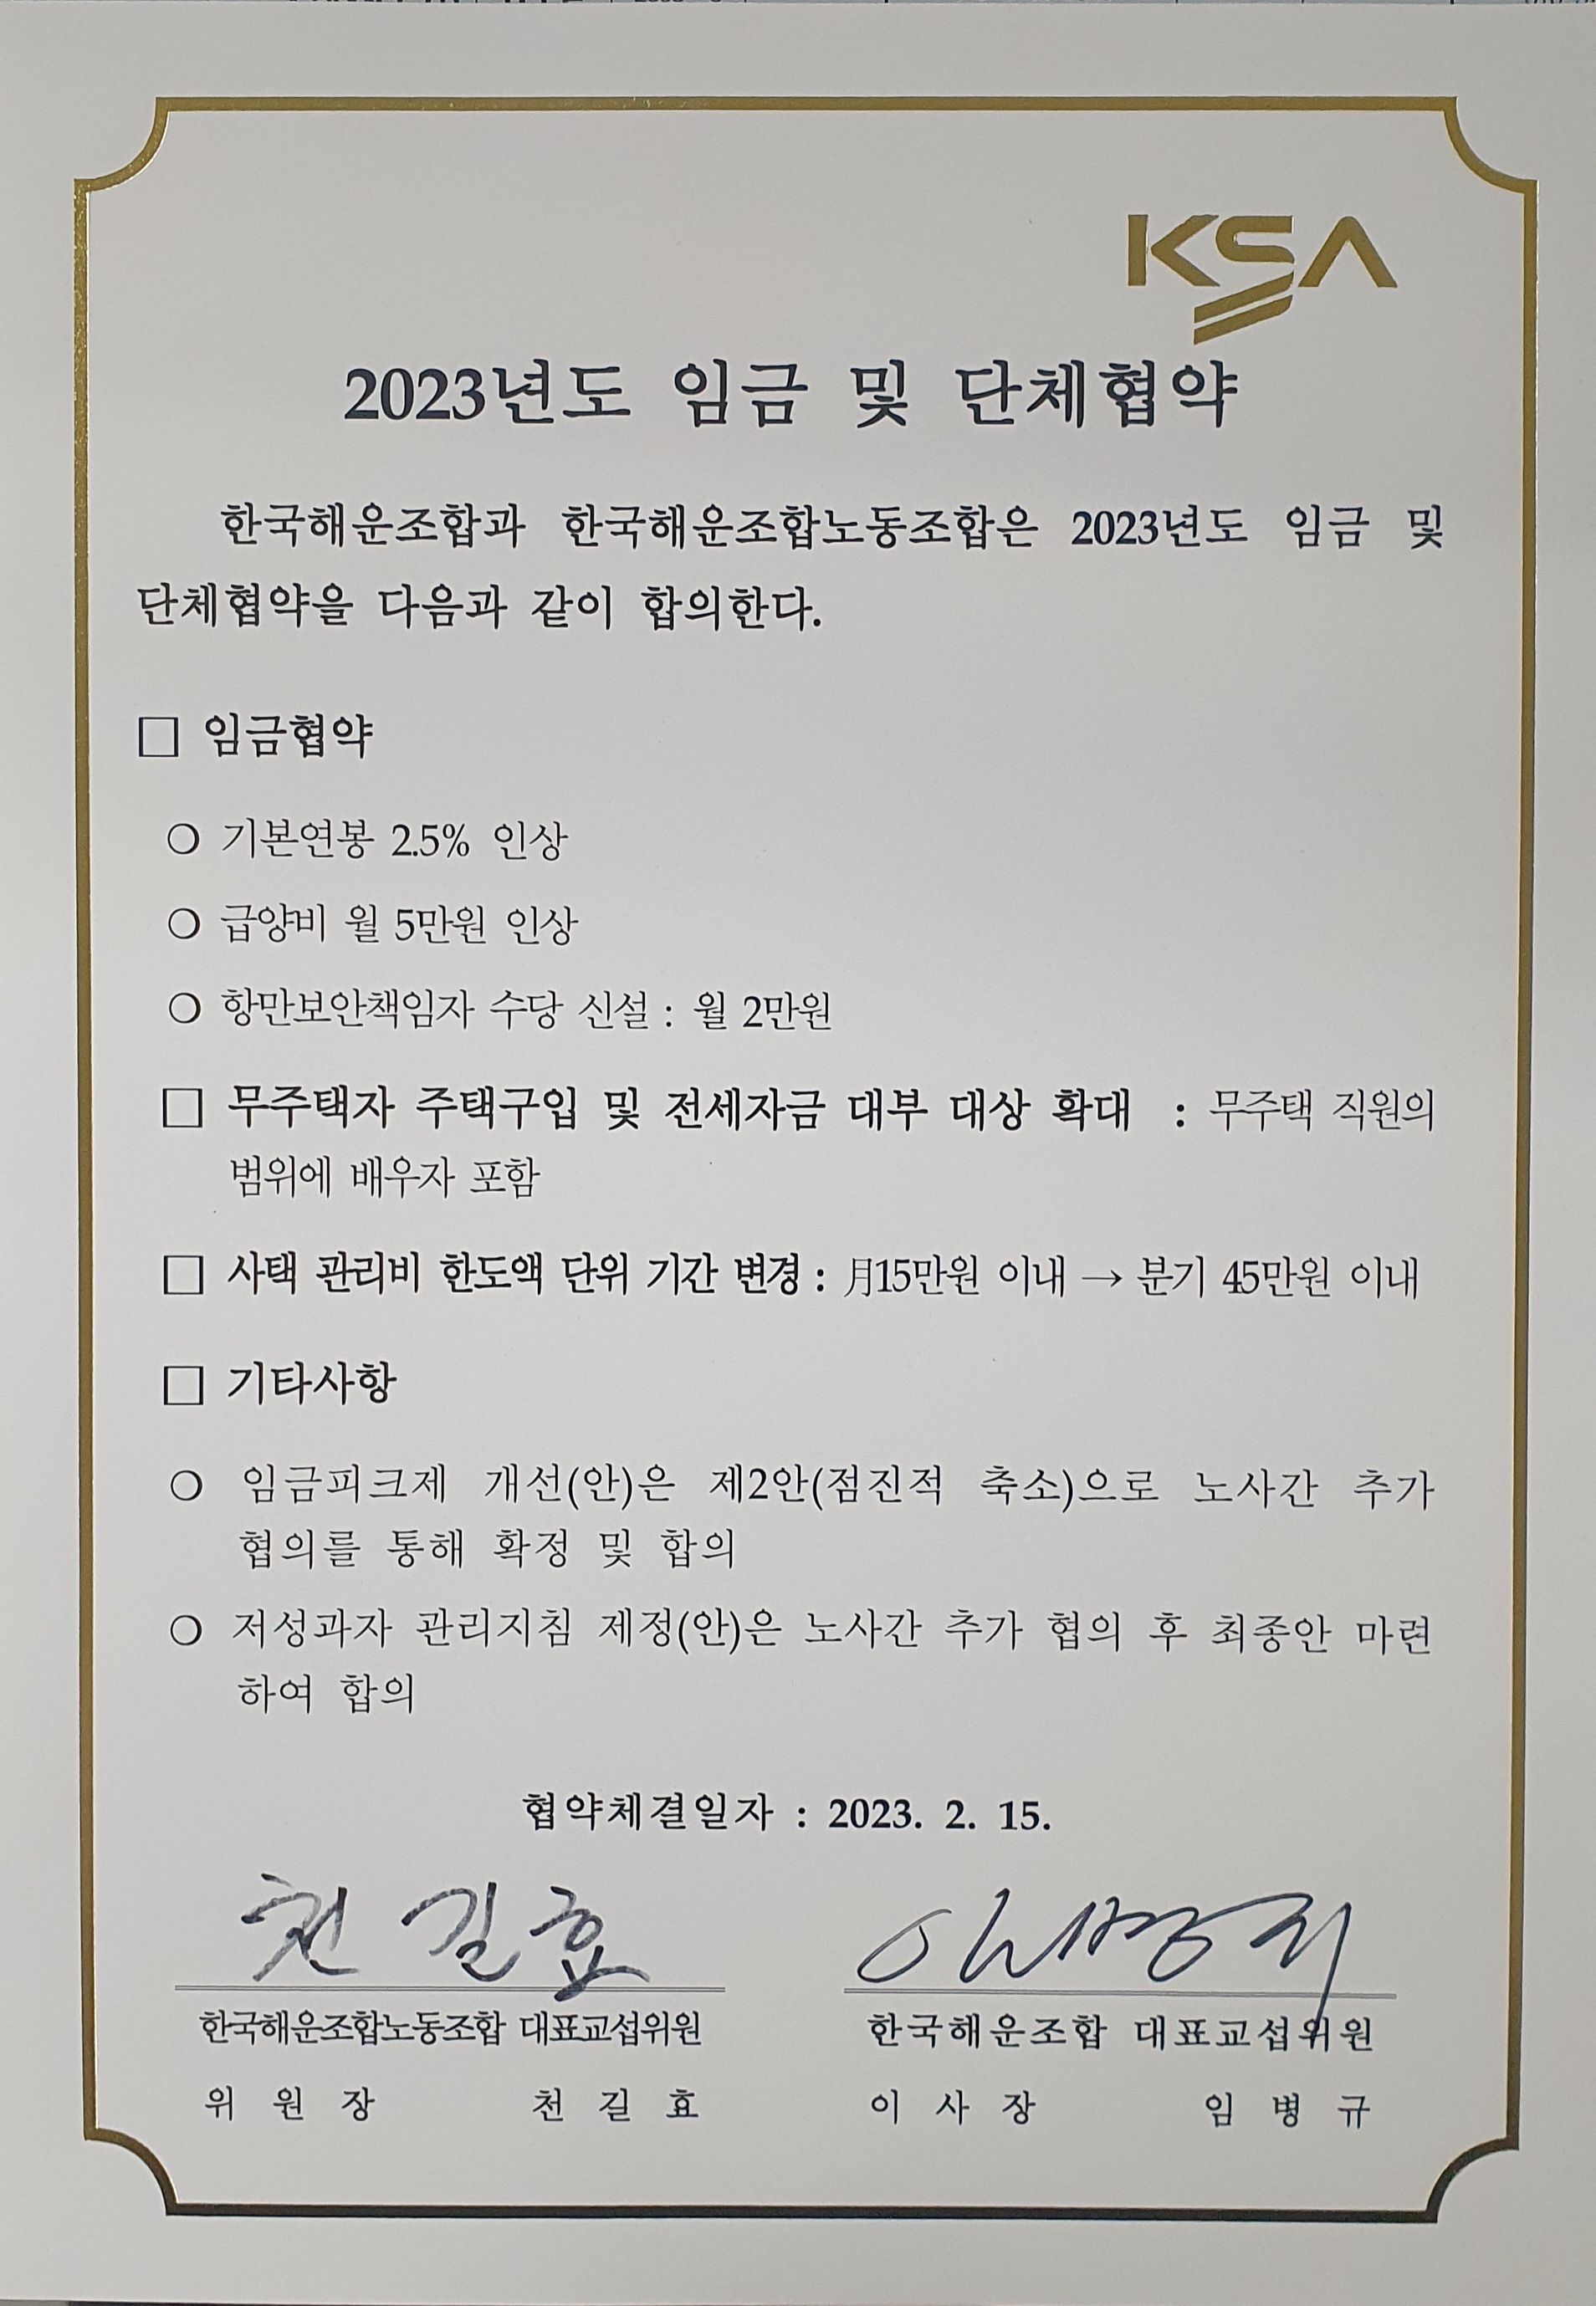 KSA
2023년도 임금 및 단체협약
한국해운조합과 한국해운조합노동조합은 2023년도 임금 및
단체협약을 다음과 같이 합의한다.
□ 임금협약
○ 기본연봉 2.5% 인상
○ 급양비 월 5만원 인상
○ 항만보안책임자 수당 신설 : 월 2만원
□ 무주택자 주택구입 및 전세자금 대부 대상 확대 : 무주택 직원의
범위에 배우자 포함
□ 사택 관리비 한도액 단위 기간 변경 : 月15만원 이내 → 분기 45만원 이내
□ 기타사항
○ 임금피크제 개선(안)은 제2안(점진적 축소)으로 노사간 추가
협의를 통해 확정 및 합의
○ 저성과자 관리지침 제정(안)은 노사간 추가 협의 후 최종안 마련
하여 합의
협약체결일자 : 2023. 2. 15.
천길효 임병규
한국해운조합노동조합 대표교섭위원 한국해운조합 대표교섭위원
위 원 장 천 길 효 이 사 장 임 병 규